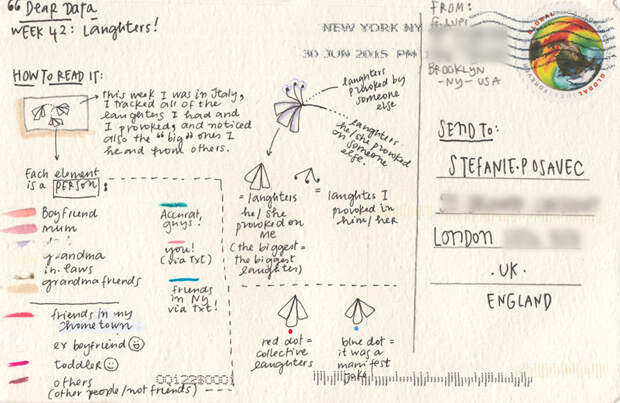 “ Dear Data
WEEK 42: Laughters!
HOW TO READ IT:
This week I was in Italy,
I tracked all of the
laughters I had and
I provoked, and noticed
also the “big” ones I
heard from others.
Each element
is a PERSON:
Boyfriend
mum
grandma
in-laws
grandma friends
friends in my
hometown
ex boyfriend
toddler
others
(other people/not friends)
Accurat,
guys!
you!
(via txt)
friends
in NY
via Txt!
laughters
provoked by
someone
else
laughters
he/she provoked
on someone
else.
= laughters
he/she
provoked on
me
(the biggest =
the biggest
laughter)
= laughtes I
provoked in
him/her
red dot =
collective
laughters
blue dot =
it was a
manifest
joke
00122$0001
NEW YORK NY
30 JUN 2015 PM
FROM:
G. LUPI
BROOKLYN
-NY- USA
GLOBAL
SEND TO:
STEFANIE.POSAVEC
LONDON
.UK.
ENGLAND